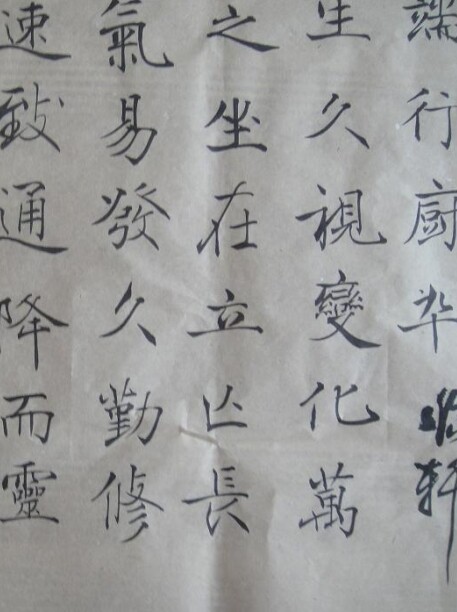 速致通降而靈
氣易發久勤修
之坐在立亡長
生久視變化萬
端行厨卒
軒